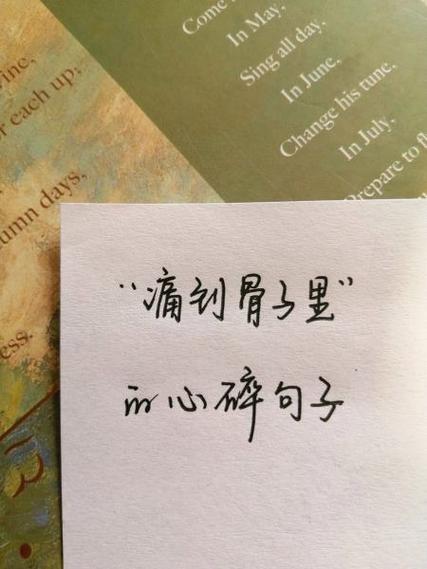 Come
In May,
Sing all day,
In June,
Change his tune,
In July,
Prepare to
ine,
each up;
umn days,
ess.
“痛到骨子里”
的心碎句子